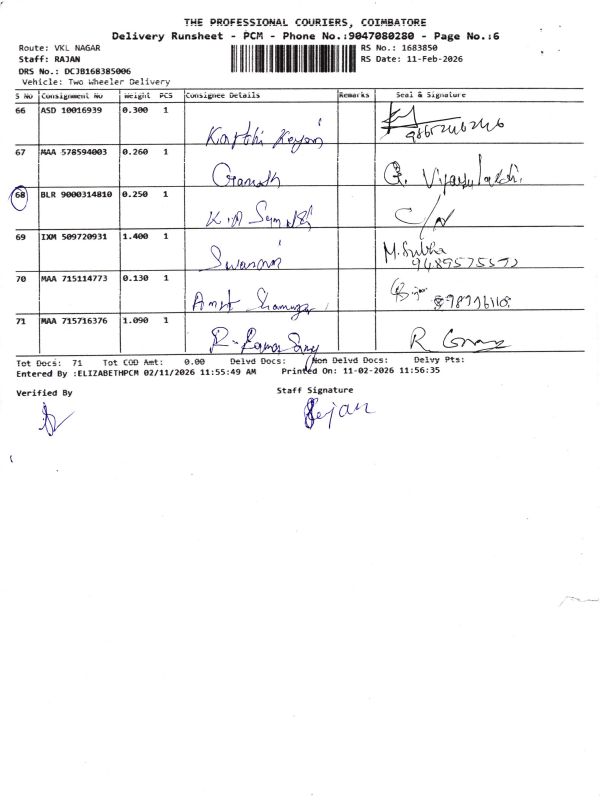 THE PROFESSIONAL COURIERS, COIMBATORE
Delivery Runsheet - PCM - Phone No.:9047080280 - Page No.:6
Route: VKL NAGAR
RS No.: 1683850
Staff: RAJAN
RS Date: 11-Feb-2026
DRS No.: DCJB168385006
Vehicle: Two Wheeler Delivery
S No Consignment No Weight PCS Consignee Details Remarks Seal & Signature
66 ASD 10016939 0.300 1
67 MAA 578594003 0.260 1 Ganesh G. Vijayalakshi
68 BLR 9000314810 0.250 1 C/N
69 IXM 509720931 1.400 1 M. Subha
70 MAA 715114773 0.130 1
71 MAA 715716376 1.090 1
Tot Docs: 71 Tot COD Amt: 0.00 Delvd Docs: Non Delvd Docs: Delvy Pts:
Entered By :ELIZABETHPCM 02/11/2026 11:55:49 AM Printed On: 11-02-2026 11:56:35
Verified By Staff Signature
Rejan